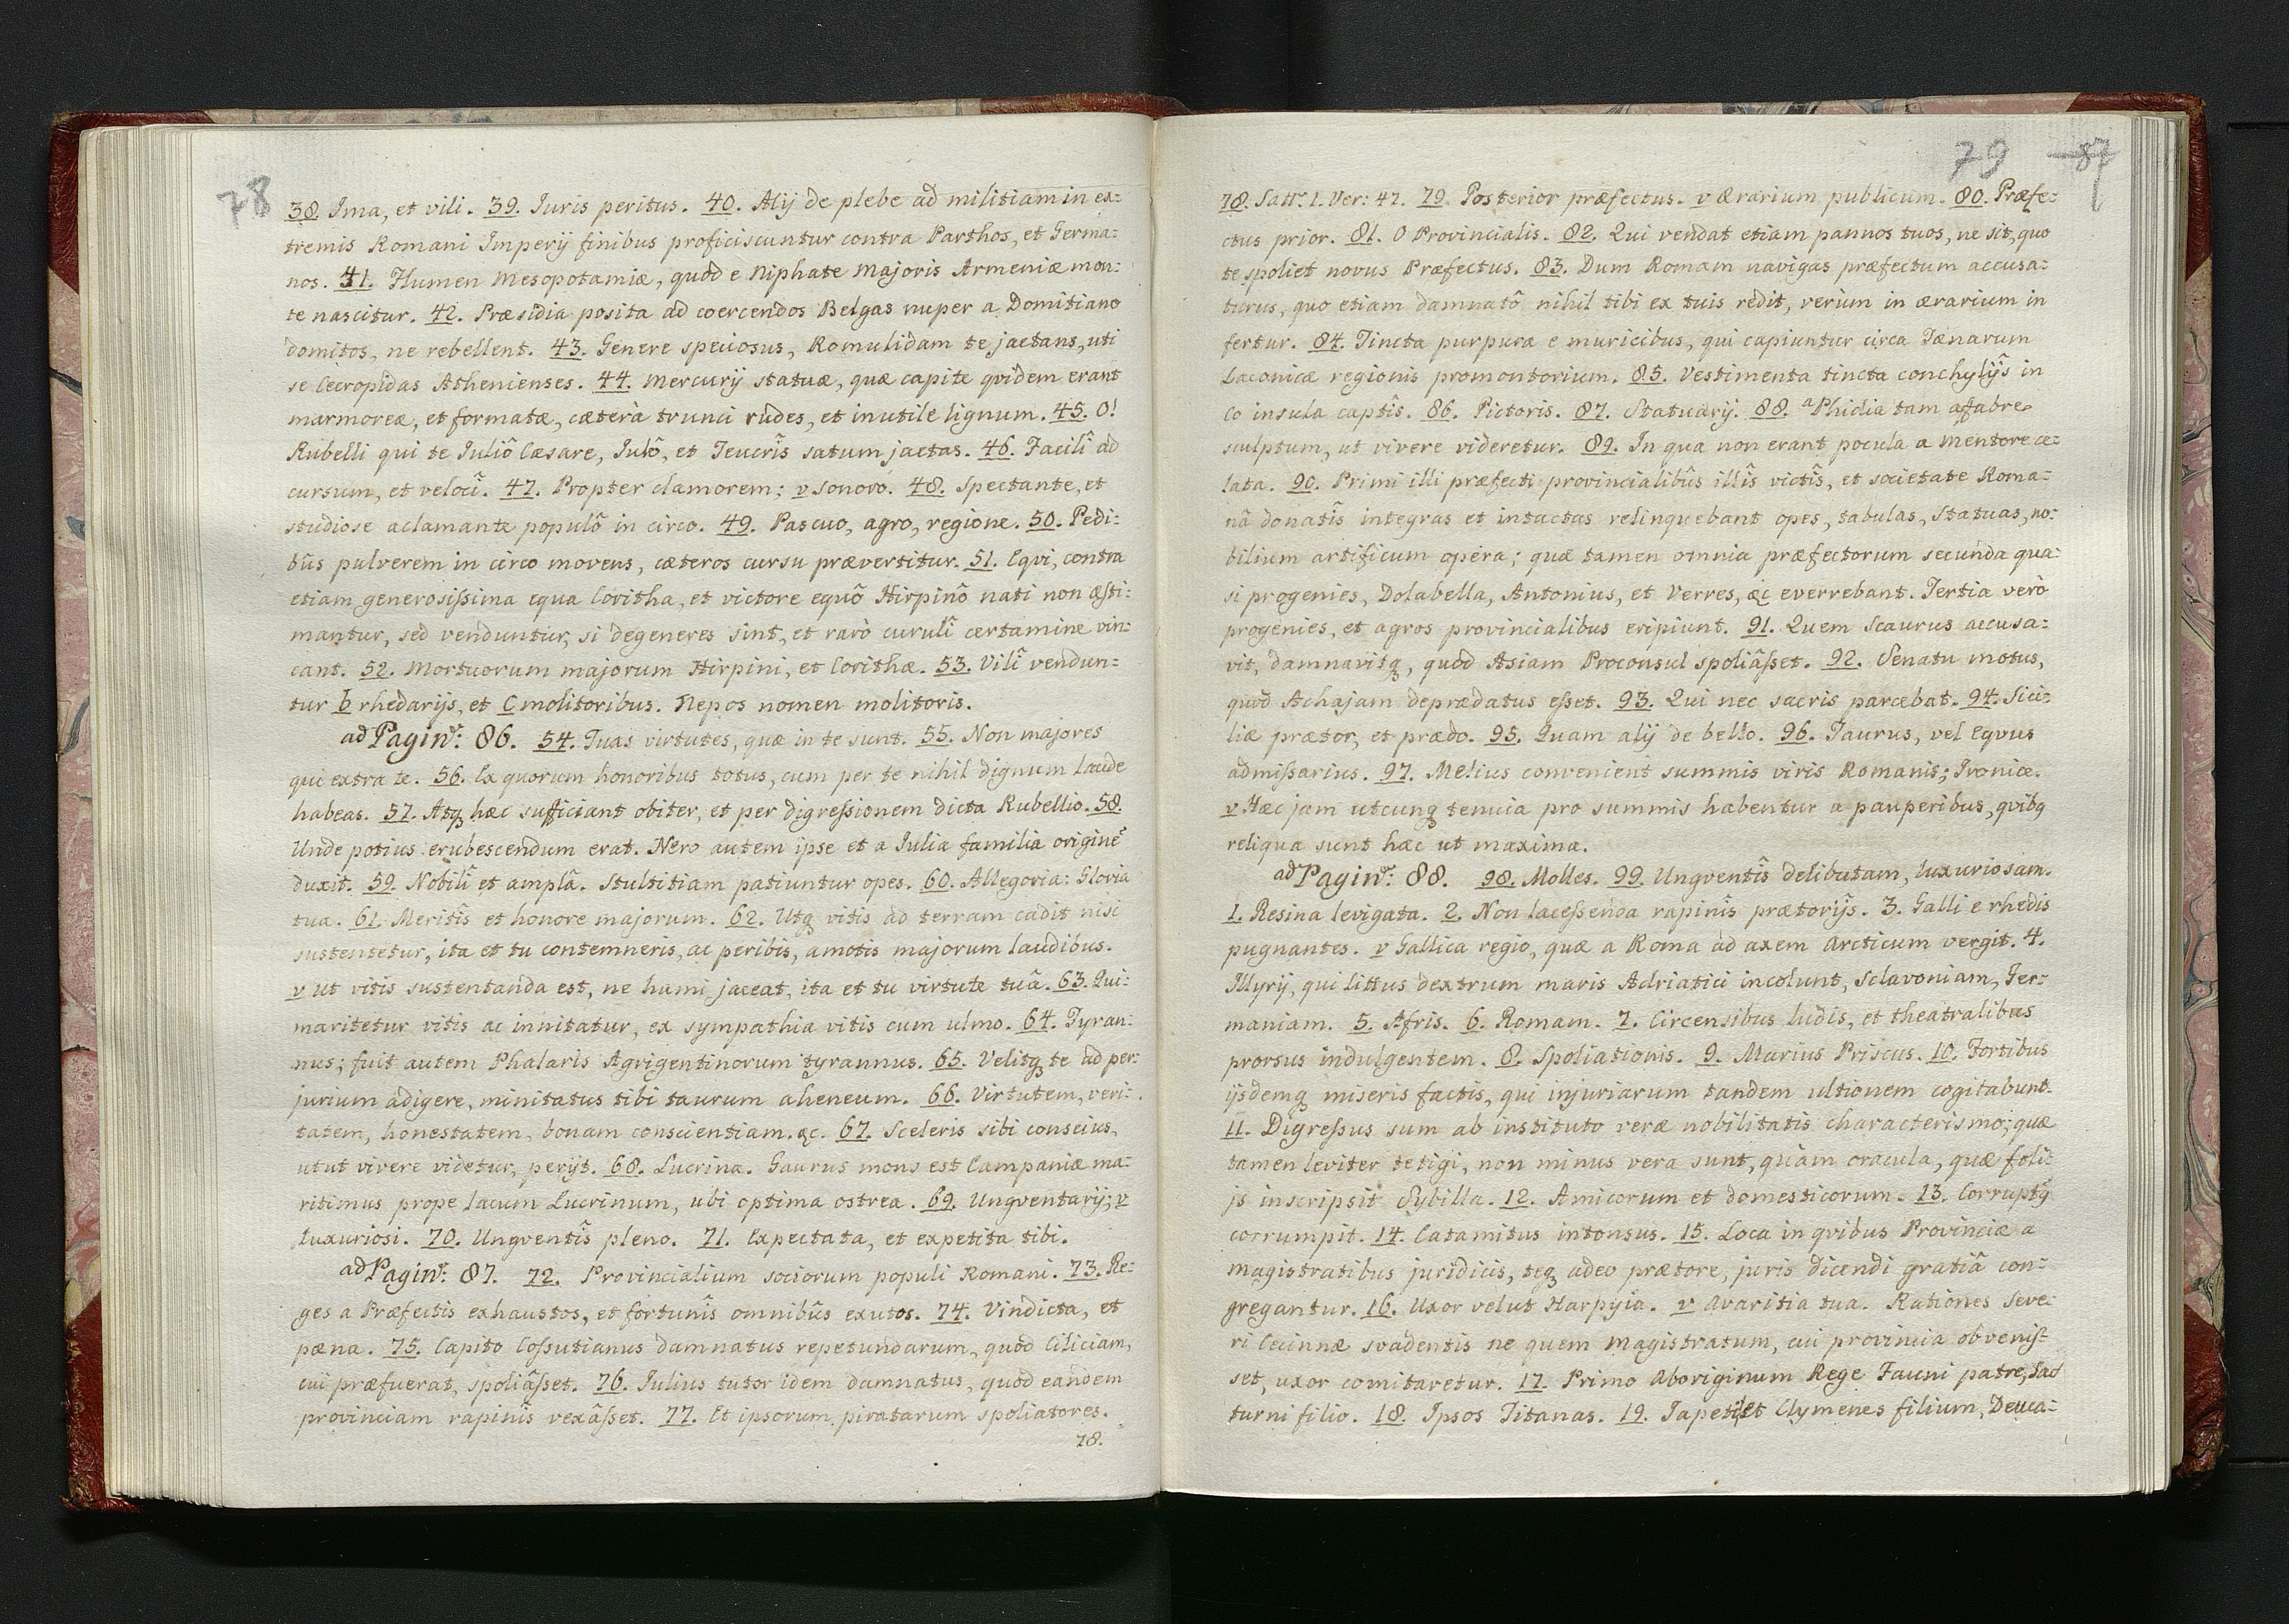 78
38. Ima, et vili. 39. Iuris peritus. 40. Alij de plebe ad militiam in ex-
tremis Romani Imperij finibus proficiscuntur contra Parthos, et Germa-
nos. 41. Flumen Mesopotamiæ, quod e Niphate Majoris Armeniæ mon-
te nascitur. 42. Præsidia posita ad coercendos Belgas nuper a Domitiano
domitos, ne rebellent. 43. Genere speciosus, Romulidam te jactans, uti
se Cecropidas Athenienses. 44. Mercurij statuæ, quæ capite qvidem erant
marmoreæ, et formatæ, cæterà trunci rudes, et inutile lignum. 45. O!
Rubelli qui te Iuliô Cæsare, Iulô, et Teucrîs satum jactas. 46. Facilî ad
cursum, et velocî. 47. Propter clamorem; v sonoro. 48. Spectante, et
studiose aclamante populô in circo. 49. Pascuo, agro, regione. 50. Pedi-
bûs pulverem in circo movens, cæteros cursu prævertitur. 51. Eqvi, contra
etiam generosißima equa Coritha, et victore equô Hirpinô nati non æsti-
mantur, sed venduntur, si degeneres sint, et rarò curulî certamine vin-
cant. 52. Mortuorum majorum Hirpini, et Corithæ. 53. Vilî vendun-
tur b rhedarijs, et C molitoribus. Nepos nomen molitoris.
ad Pagin: 86. 54. Tuas virtutes, quæ in te sunt. 55. Non majores
qui extra te. 56. Ex quorum honoribus totus, cum per te nihil dignum laude
habeas. 57. Atq hæc sufficiant obiter, et per digreßionem dicta Rubellio. 58.
Unde potius erubescendum erat. Nero autem ipse et a Iulia familia origine
duxit. 59. Nobilî et amplâ. Stultitiam patiuntur opes. 60. Allegoria: Gloria
tua. 61. Meritîs et honore majorum. 62. Utq vitis ad terram cadit nisi
sustentetur, ita et tu contemneris, ac peribis, amotis majorum laudibus.
v ut vitis sustentanda est, ne humi jaceat, ita et tu virtute tuâ. 63. Qui-
maritetur vitis ac innitatur, ex sympathia vitis cum ulmo. 64. Tyran-
nus; fuit autem Phalaris Agrigentinorum tyrannus. 65. Velitq te ad per-
jurium adigere, minitatus tibi taurum aheneum. 66. Virtutem, veri-
tatem, honestatem, bonam conscientiam. &c. 67. Sceleris sibi conscius,
utut vivere videtur, perijt. 68. Lucrina. Gaurus mons est Campaniæ ma-
ritimus prope lacum Lucrinum, ubi optima ostrea. 69. Ungventarij; v
luxuriosi. 70. Ungventîs pleno. 71. Expectata, et expetita tibi.
ad Pagin: 87. 72. Provincialium sociorum populi Romani. 73. Re-
ges a Præfectis exhaustos, et fortunîs omnibûs exutos. 74. Vindicta, et
pæna. 75. Capito Coßutianus damnatus repetundarum, quod Ciliciam,
cui præfuerat, spoliâßet. 76. Iulius tutor idem damnatus, quod eandem
provinciam rapinîs vexâßet. 77. Et ipsorum piratarum spoliatores.
78.
79 87
78. Satr. 1. Ver: 47. 79. Posterior præfectus. v ærarium publicum. 80. Præfe-
ctus prior. 81. O Provincialis. 82. Qui vendat etiam pannos tuos, ne sit, quo
te spoliet novus Præfectus. 83. Dum Romam navigas præfectum accusa-
turus, quo etiam damnatô nihil tibi ex tuis redit, verùm in ærarium in
fertur. 84. Tincta purpura e muricibus, qui capiuntur circa Tænarum
Laconicæ regionis promontorium. 85. Vestimenta tincta conchylijs in
Co insula captîs. 86. Pictoris. 87. Statuarij. 88. a Phidia tam affabre
sculptum, ut vivere videretur. 89. In qua non erant pocula a Mentore cæ-
lata. 90. Primi illi præfecti provincialibûs illîs victîs, et societate Roma-
nâ donatîs integras et intactas relinquebant opes, tabulas, statuas, no-
bilium artificum opera; quæ tamen omnia præfectorum secunda qua-
si progenies, Dolabella, Antonius, et Verres, &c everrebant. Tertia verò
progenies, et agros provincialibus eripiunt. 91. Quem Scaurus accusa-
vit, damnavitq, quod Asiam Proconsul spoliâßet. 92. Senatu motus,
quod Achajam deprædatus eßet. 93. Qui nec sacris parcebat. 94. Sici-
liæ prætor, et prædo. 95. Quam alij de bello. 96. Taurus, vel Eqvus
admißarius. 97. Melius convenient summis viris Romanis; Ironice.
v Hæc jam utcunq tenuia pro summis habentur a pauperibus, qvibq
reliqua sunt hæc ut maxima.
ad Pagin: 88. 98. Molles. 99. Ungventîs delibutam, luxuriosam.
1. Resina levigata. 2. Non laceßenda rapinîs prætorijs. 3. Galli e rhedis
pugnantes. v Gallica regio, quæ a Roma ad axem Arcticum vergit. 4.
Illyrij, qui littus dextrum maris Adriatici incolunt, Sclavoniam, Ger-
maniam. 5. Afris. 6. Romam. 7. Circensibus ludis, et theatralibus
prorsus indulgentem. 8. Spoliationis. 9. Marius Priscus. 10. Fortibus
ijsdemq miseris factis, qui injuriarum tandem ultionem cogitabunt.
11. Digreßus sum ab instituto veræ nobilitatis characterismo; quæ
tamen leviter tetigi, non minus vera sunt, quàm oracula, quæ foli-
js inscripsit Sybilla. 12. Amicorum et domesticorum. 13. Corruptq
corrumpit. 14. Catamitus intonsus. 15. Loca in qvibus Provinciæ a
magistratibus juridicis, teq adeo prætore, juris dicendi gratiâ con-
gregantur. 16. Uxor velut Harpyia. v Avaritia tua. Rationes Seve-
ri Cecinnæ svadentis ne quem magistratum, cui provincia obvenis-
set, uxor comitaretur. 17. Primo Aboriginum Rege Fauni patre, Sa
turni filio. 18. Ipsos Titanas. 19. Iapeti et Clymenes filium, Deuca-